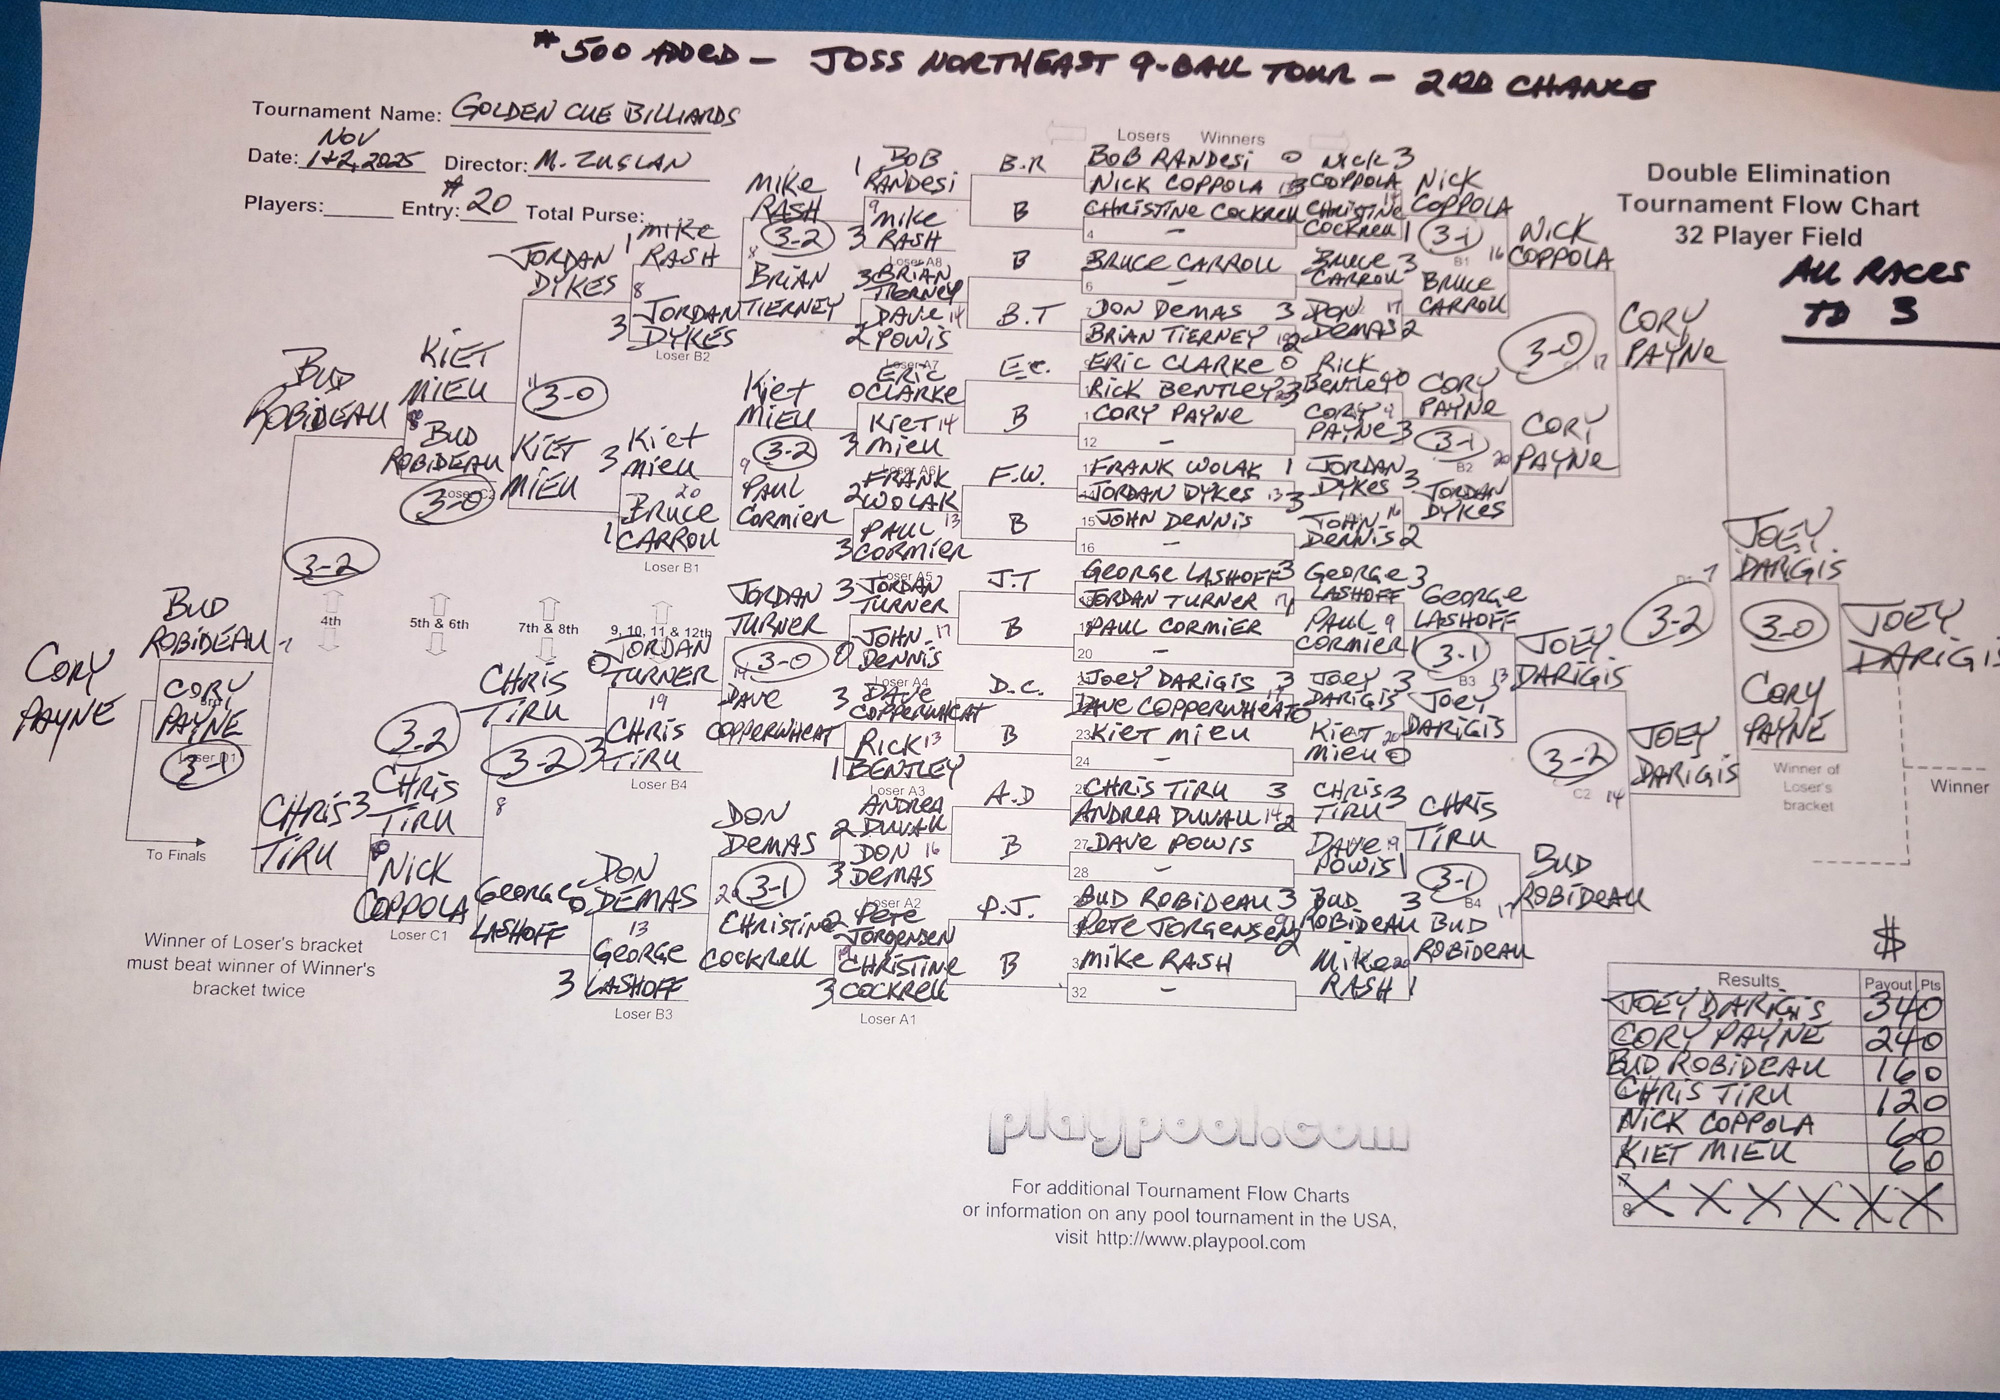 #500 ADDED - JOSS NORTHEAST 9-BALL TOUR - 2ND CHANCE
Tournament Name: GOLDEN CUE BILLIARDS
Date: NOV 1+2, 2025 Director: M. ZUGLAN
Players: Entry: #20 Total Purse:
Double Elimination
Tournament Flow Chart
32 Player Field
ALL RACES
TO 3
Losers Winners
BOB RANDESI 0
NICK COPPOLA 3
CHRISTINE COCKRELL
4 -
BRUCE CARROLL
6 -
DON DEMAS 3
BRIAN TIERNEY 2
ERIC CLARKE 0
RICK BENTLEY 3
CORY PAYNE
12 -
FRANK WOLAK 1
JORDAN DYKES 13 3
15 JOHN DENNIS
16 -
GEORGE LASHOFF 3
JORDAN TURNER
PAUL CORMIER
20 -
JOEY DARIGIS 3
DAVE COPPERWHEAT 0
23 KIET MIEU
24 -
CHRIS TIRU 3
ANDREA DUVALL 14 2
27 DAVE POWIS
28 -
BUD ROBIDEAU 3
PETE JORGENSEN 2
MIKE RASH
32 -
NICK 3
COPPOLA
CHRISTINE
COCKRELL 1
BRUCE 3
CARROLL
DON 17
DEMAS 2
RICK
BENTLEY 0
CORY 9
PAYNE 3
JORDAN
DYKES 3
JOHN 16
DENNIS 2
GEORGE 3
LASHOFF
PAUL 9
CORMIER 1
JOEY 3
DARIGIS
KIET 20
MIEU 0
CHRIS 3
TIRU
DAVE 19
POWIS 1
BUD 3
ROBIDEAU
MIKE 20
RASH 1
NICK
COPPOLA
3-1
B1
BRUCE
CARROLL
CORY
PAYNE
3-1
B2
JORDAN
DYKES
GEORGE
LASHOFF
3-1
B3
JOEY
DARIGIS
CHRIS
TIRU
3-1
B4
BUD
ROBIDEAU
16
NICK
COPPOLA
3-0
17
20
CORY
PAYNE
13
JOEY
DARIGIS
3-2
C2 14
17
BUD
ROBIDEAU
CORY
PAYNE
3-2
JOEY
DARIGIS
7
JOEY
DARIGIS
3-0
CORY
PAYNE
Winner of
Loser's
bracket
JOEY
DARIGIS
Winner
B.R
B
B
B.T
E.C.
B
F.W.
B
J.T
B
D.C.
B
A.D
B
P.J.
B
1 BOB
RANDESI
9 MIKE
3 RASH
Loser A8
3 BRIAN
TIERNEY
DAVE 14
2 POWIS
Loser A7
ERIC
0 CLARKE
KIET 14
3 MIEU
Loser A6
FRANK
2 WOLAK
PAUL 13
3 CORMIER
Loser A5
3 JORDAN
TURNER
JOHN 17
0 DENNIS
Loser A4
3 DAVE
COPPERWHEAT
RICK 13
1 BENTLEY
Loser A3
ANDREA
2 DUVALL
DON 16
3 DEMAS
Loser A2
2 PETE
JORGENSEN
CHRISTINE
3 COCKRELL
Loser A1
MIKE
RASH
3-2
8
BRIAN
TIERNEY
KIET
MIEU
3-2
9
PAUL
CORMIER
JORDAN
TURNER
3-0
DAVE
COPPERWHEAT
DON
DEMAS
3-1
CHRISTINE
COCKRELL
1 MIKE
RASH
8
JORDAN
3 DYKES
Loser B2
KIET
3 MIEU
20
BRUCE
1 CARROLL
Loser B1
9, 10, 11 & 12th
JORDAN
0 TURNER
19
CHRIS
3 TIRU
Loser B4
DON
0 DEMAS
13
GEORGE
3 LASHOFF
Loser B3
JORDAN
DYKES
11
3-0
KIET
MIEU
7th & 8th
CHRIS
TIRU
3-2
8
GEORGE
LASHOFF
KIET
MIEU
8
BUD
ROBIDEAU
Loser C2
3-0
5th & 6th
3-2
CHRIS
TIRU
NICK
COPPOLA
Loser C1
BUD
ROBIDEAU
3-2
4th
CHRIS 3
TIRU
BUD
ROBIDEAU
7
CORY
PAYNE
Loser D1
3-1
CORY
PAYNE
To Finals
Winner of Loser's bracket
must beat winner of Winner's
bracket twice
$
Results Payout Pts
JOEY DARIGIS 340
CORY PAYNE 240
BUD ROBIDEAU 160
CHRIS TIRU 120
NICK COPPOLA 60
KIET MIEU 60
7
8 X X X X X X
playpool.com
For additional Tournament Flow Charts
or information on any pool tournament in the USA,
visit http://www.playpool.com